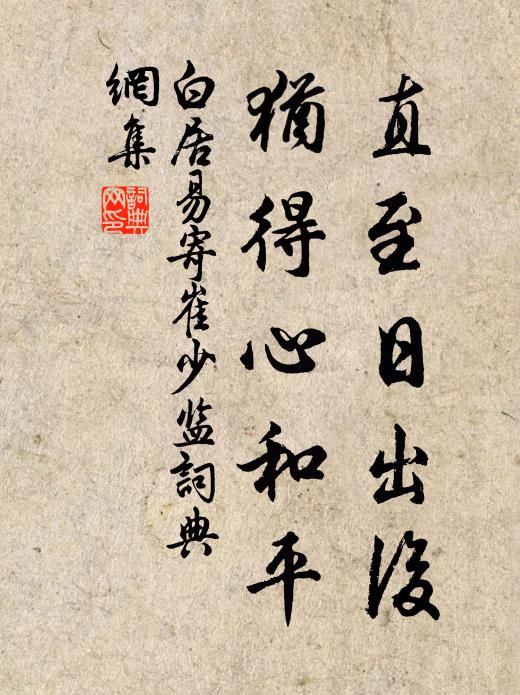 直至日出後
猶得心和平
白居易寄崔少监詞典
網集
詞典網印